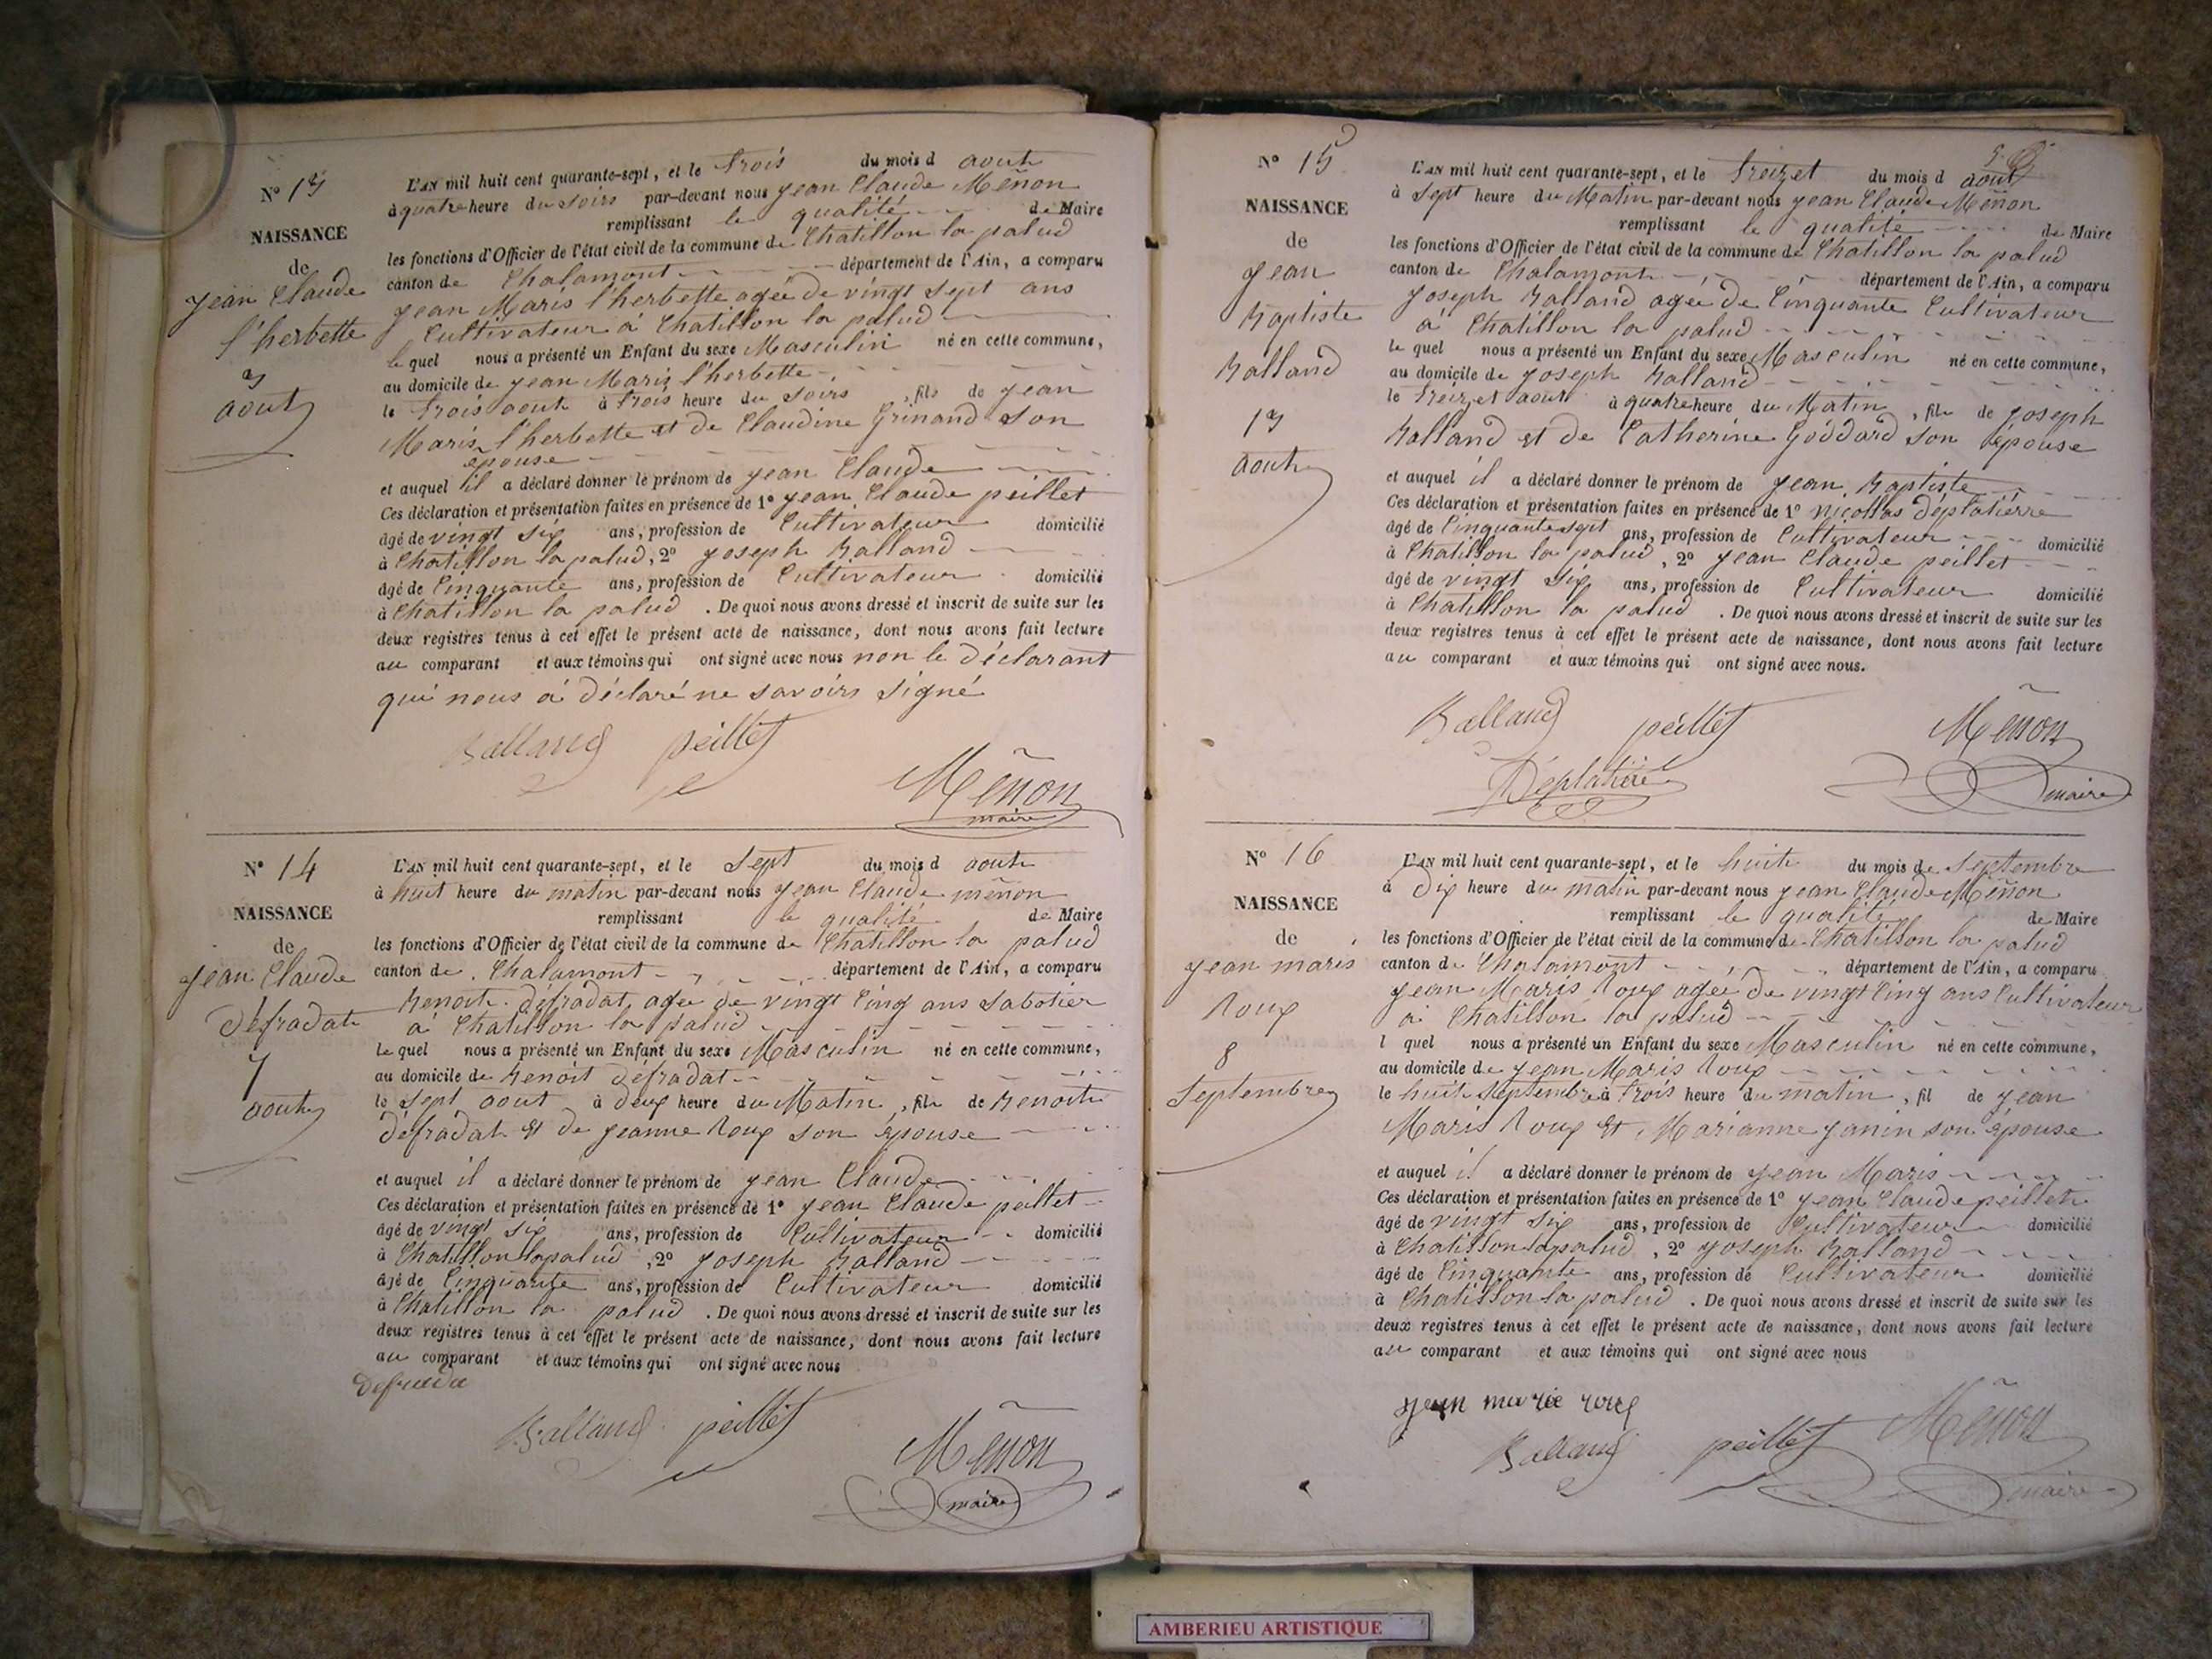 N° 13
NAISSANCE
de
jean Claude
l'herbette
3
aout
L'AN mil huit cent quarante-sept, et le trois du mois d aout
à quatre heure du soirs par-devant nous jean Claude Meñon
remplissant le qualité de Maire
les fonctions d'Officier de l'état civil de la commune de Chatillon la palud
canton de Chalamont département de l'Ain, a comparu
jean Maris l'herbette agée de vingt sept ans
Cultivateur à Chatillon la palud
le quel nous a présenté un Enfant du sexe Masculin né en cette commune,
au domicile de jean Maris l'herbette
le trois aout à trois heure du soirs, fils de jean
Maris l'herbette et de Claudine Grinand son
épouse
et auquel il a déclaré donner le prénom de jean Claude
Ces déclaration et présentation faites en présence de 1° jean Claude peillet
âgé de vingt six ans, profession de Cultivateur domicilié
à Chatillon la palud, 2° joseph Balland
âgé de Cinquante ans, profession de Cultivateur domicilié
à Chatillon la palud. De quoi nous avons dressé et inscrit de suite sur les
deux registres tenus à cet effet le présent acte de naissance, dont nous avons fait lecture
au comparant et aux témoins qui ont signé avec nous non le déclarant
qui nous à déclaré ne savoirs signé
Balland peillet
Meñon
maire
N° 14
NAISSANCE
de
jean Claude
défradat
7
aout
L'AN mil huit cent quarante-sept, et le sept du mois d aout
à huit heure du matin par-devant nous jean Claude meñon
remplissant le qualité de Maire
les fonctions d'Officier de l'état civil de la commune de Chatillon la palud
canton de Chalamont département de l'Ain, a comparu
Benoit défradat, agée de vingt Cinq ans sabotier
à Chatillon la palud
le quel nous a présenté un Enfant du sexe Masculin né en cette commune,
au domicile de Benoit défradat
le sept aout à deux heure du Matin, fils de Benoit
défradat et de jeanne Roux son épouse
et auquel il a déclaré donner le prénom de jean Claude
Ces déclaration et présentation faites en présence de 1° jean Claude peillet
âgé de vingt six ans, profession de Cultivateur domicilié
à Chatillon la palud, 2° joseph Balland
âgé de Cinquante ans, profession de Cultivateur domicilié
à Chatillon la palud. De quoi nous avons dressé et inscrit de suite sur les
deux registres tenus à cet effet le présent acte de naissance, dont nous avons fait lecture
au comparant et aux témoins qui ont signé avec nous
Balland peillet
Meñon
maire
N° 15
NAISSANCE
de
jean
Baptiste
Balland
13
aout
L'AN mil huit cent quarante-sept, et le treizet du mois d aout
à sept heure du Matin par-devant nous jean Claude Meñon
remplissant le qualité de Maire
les fonctions d'Officier de l'état civil de la commune de Chatillon la palud
canton de Chalamont département de l'Ain, a comparu
joseph Balland agée de Cinquante Cultivateur
à Chatillon la palud
le quel nous a présenté un Enfant du sexe Masculin né en cette commune,
au domicile de joseph Balland
le treizet aout à quatre heure du Matin, fils de joseph
Balland et de Catherine Goddard son épouse
et auquel il a déclaré donner le prénom de jean Baptiste
Ces déclaration et présentation faites en présence de 1° nicollas déplatierre
âgé de Cinquante sept ans, profession de Cultivateur domicilié
à Chatillon la palud, 2° jean Claude peillet
âgé de vingt six ans, profession de Cultivateur domicilié
à Chatillon la palud. De quoi nous avons dressé et inscrit de suite sur les
deux registres tenus à cet effet le présent acte de naissance, dont nous avons fait lecture
au comparant et aux témoins qui ont signé avec nous.
Balland peillet Meñon
Déplatière maire
N° 16
NAISSANCE
de
jean maris
Roux
8
septembre
L'AN mil huit cent quarante-sept, et le huit du mois de septembre
à dix heure du matin par-devant nous jean Claude Meñon
remplissant le qualité de Maire
les fonctions d'Officier de l'état civil de la commune de Chatillon la palud
canton de Chalamont département de l'Ain, a comparu
jean Maris Roux agée de vingt Cinq ans Cultivateur
à Chatillon la palud
l quel nous a présenté un Enfant du sexe Masculin né en cette commune,
au domicile de jean Maris Roux
le huit septembre à trois heure du matin, fil de jean
Maris Roux et Marianne janin son épouse
et auquel il a déclaré donner le prénom de jean Maris
Ces déclaration et présentation faites en présence de 1° jean Claude peillet
âgé de vingt six ans, profession de Cultivateur domicilié
à Chatillon la palud, 2° joseph Balland
âgé de Cinquante ans, profession de Cultivateur domicilié
à Chatillon la palud. De quoi nous avons dressé et inscrit de suite sur les
deux registres tenus à cet effet le présent acte de naissance, dont nous avons fait lecture
au comparant et aux témoins qui ont signé avec nous
jean marie roux
Balland peillet Meñon
maire
AMBERIEU ARTISTIQUE